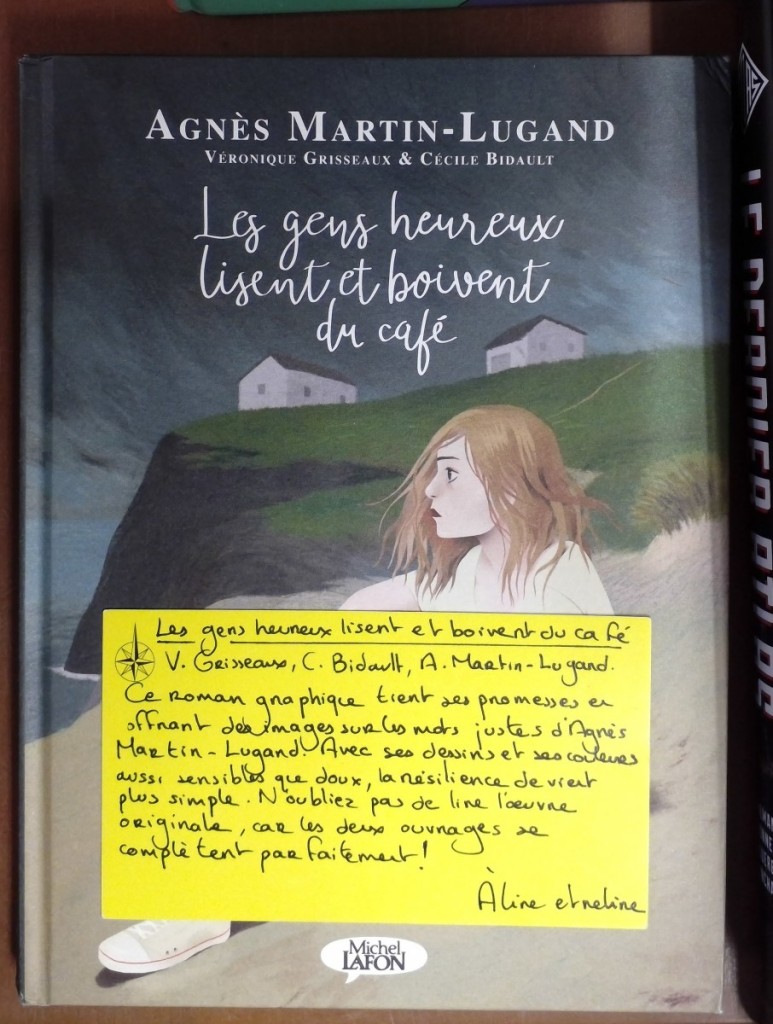 AGNÈS MARTIN-LUGAND
VÉRONIQUE GRISSEAUX & CÉCILE BIDAULT
Les gens heureux
lisent et boivent
du café
Les gens heureux lisent et boivent du café
V. Grisseaux, C. Bidault, A. Martin-Lugand.
Ce roman graphique tient ses promesses en
offrant des images sur les mots justes d'Agnès
Martin-Lugand. Avec ses dessins et ses couleurs
aussi sensibles que doux, la résilience devient
plus simple. N'oubliez pas de lire l'œuvre
originale, car les deux ouvrages se
complètent parfaitement !
À lire et relire
Michel
LAFON
LE DERNIER